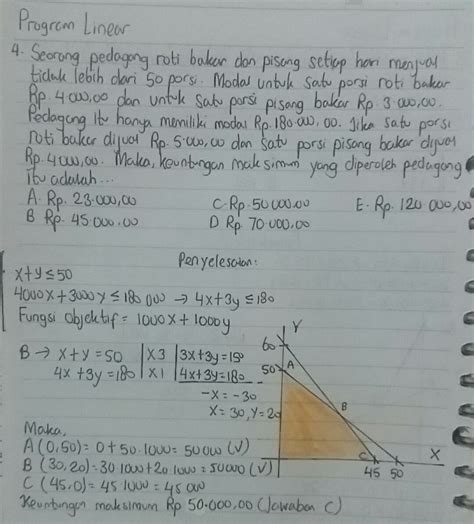 Program Linear
4. Seorang pedagang roti bakar dan pisang setiap hari menjual
tidak lebih dari 50 porsi. Modal untuk satu porsi roti bakar
Rp. 4 000,00 dan untuk satu porsi pisang bakar Rp. 3 000,00.
Pedagang itu hanya memiliki modal Rp. 180 000, 00. Jika satu porsi
roti bakar dijual Rp. 5 000,00 dan satu porsi pisang bakar dijual
Rp. 4 000,00. Maka, keuntungan maksimum yang diperoleh pedagang
itu adalah...
A. Rp. 23.000,00 C. Rp. 50 000.00 E. Rp. 120 000,00
B Rp. 45 000.00 D Rp 70 000.00
Penyelesaian:
x+y ≤ 50
4000x + 3000y ≤ 180 000 → 4x+3y ≤ 180
Fungsi objektif = 1000x + 1000y
B → x+y = 50 | x3 | 3x+3y = 150
4x + 3y = 180 | x1 | 4x+3y = 180 -
-x = -30
x = 30, y = 20
Maka,
A (0,50) = 0 + 50 . 1000 = 50 000 (V)
B (30,20) = 30 1000 + 20 1000 = 50000 (V)
C (45,0) = 45 1000 = 45 000
Keuntungan maksimum Rp 50.000,00 (Jawaban C)
Y
60
50
A
B
C
X
45 50